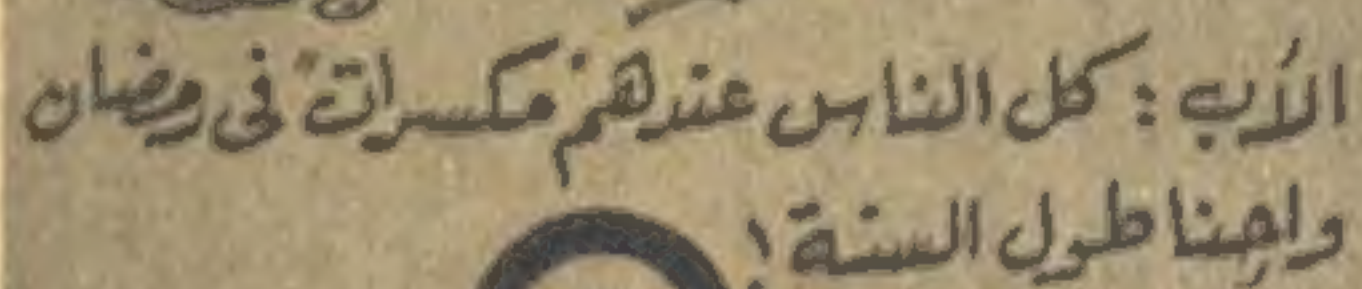 الأب : كل الناس عندهم "مكسرات" فى رمضان
واحنا طول السنة !